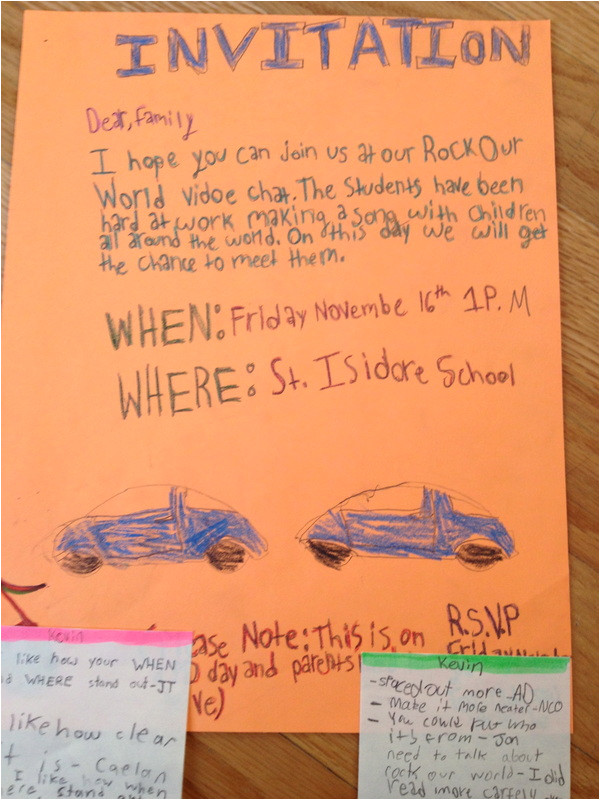 INVITATION
Dear, Family
I hope you can join us at our Rock Our
World vidoe chat. The Students have been
hard at work making a song with children
all around the world. On this day we will get
the chance to meet them.
WHEN: Friday Novembe 16th 1P.M
WHERE: St. Isidore School
ase Note: This is on
day and parents
ve)
R.S.V.P
Friday
Kevin
like how your WHEN
WHERE stand out-JT
like how clear
t is - Caelan
I like how when
ere stand
Kevin
-spaced out more-AD
- Make it more neater-NCO
- You could put who
its from - Jon
need to talk about
rock our world - I did
read more carfesy